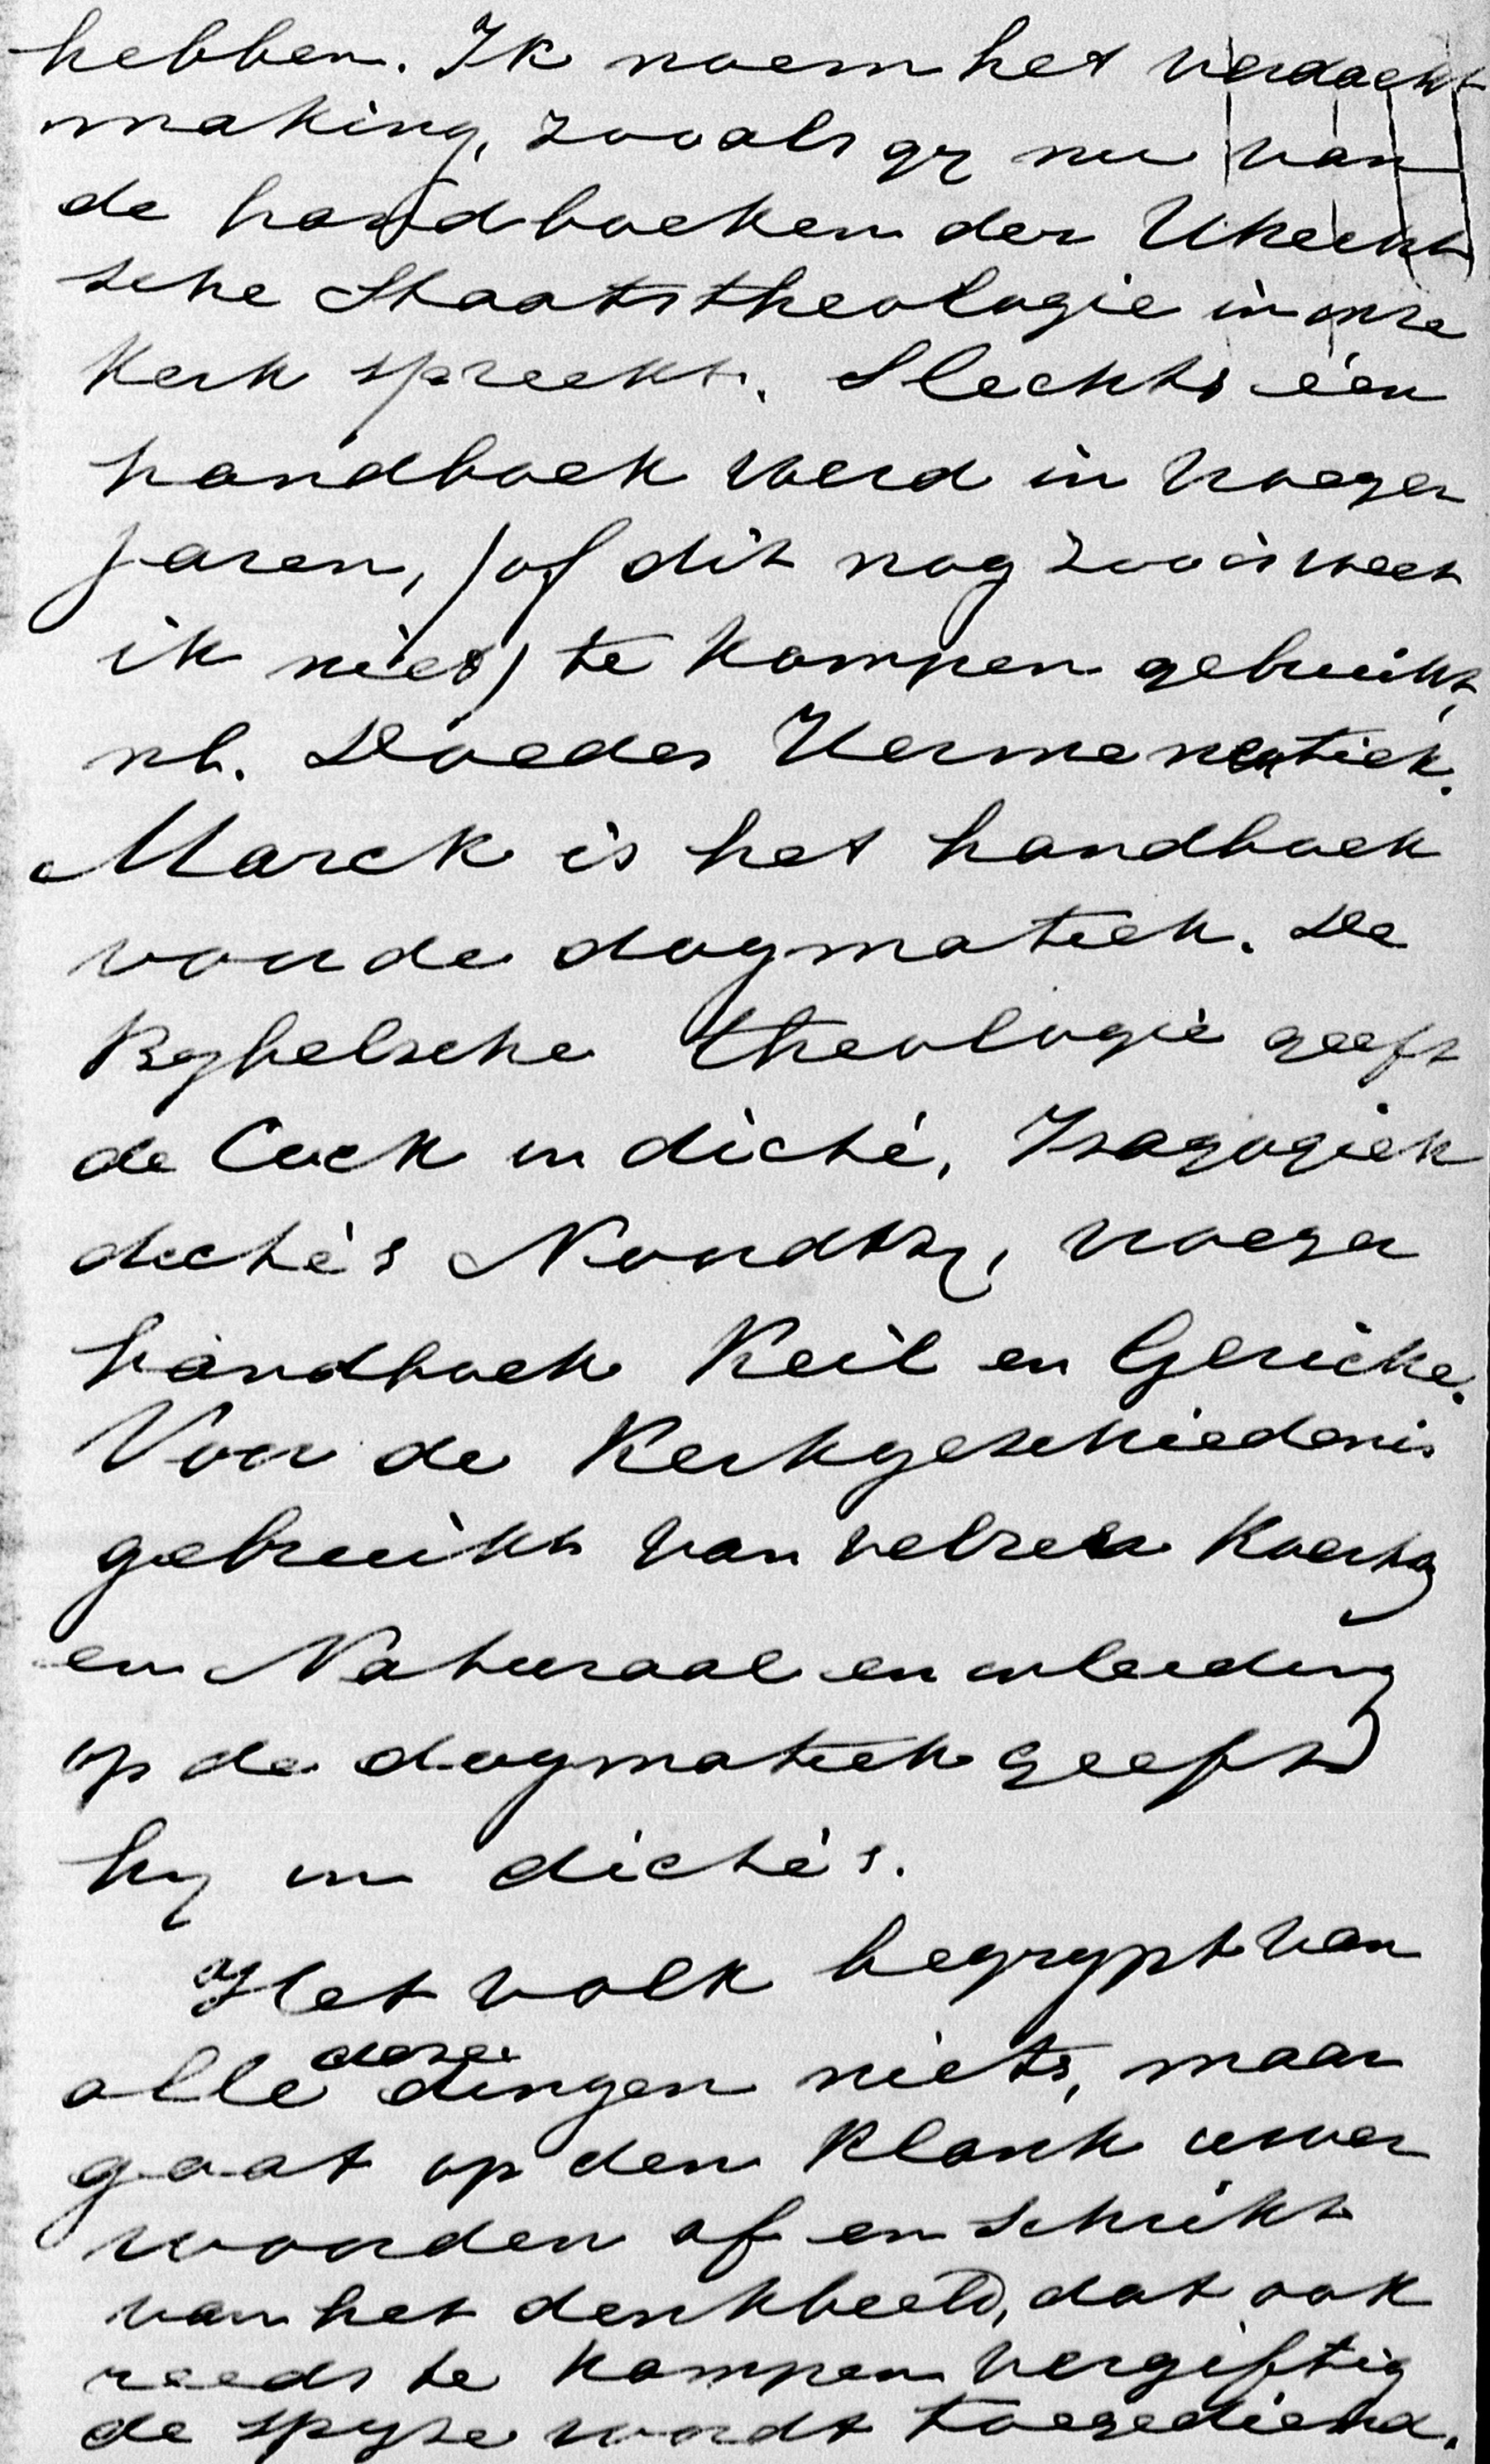 hebben. Ik noem het verdacht
making, zooals gy nu van
de handboeken der Utrecht
sche Staatstheologie in onze
Kerk spreekt. Slechts één
handboek werd in vroeger
jaren, (of dit nog zoo is weet
ik niet) te Kampen gebruikt,
nl. Doedes Hermeneutiek.
Marck is het handboek
voor de dogmatiek. De
Bybelsche theologie geeft
de Cock in dicté, Isagogiek
dicté's Noordtzy, vroeger
handboek Keil en Gericke.
Voor de Kerkgeschiedenis
gebruikt van Velzen Kurtz
en Naturaal en inleiding
op de dogmatiek geeft
hy in dicté's.
Het volk begrypt van
alle deze dingen niets, maar
gaat op den klank uwer
woorden af en schrikt
van het denkbeeld, dat ook
reeds te Kampen vergiftig
de spyze wordt toegediend.